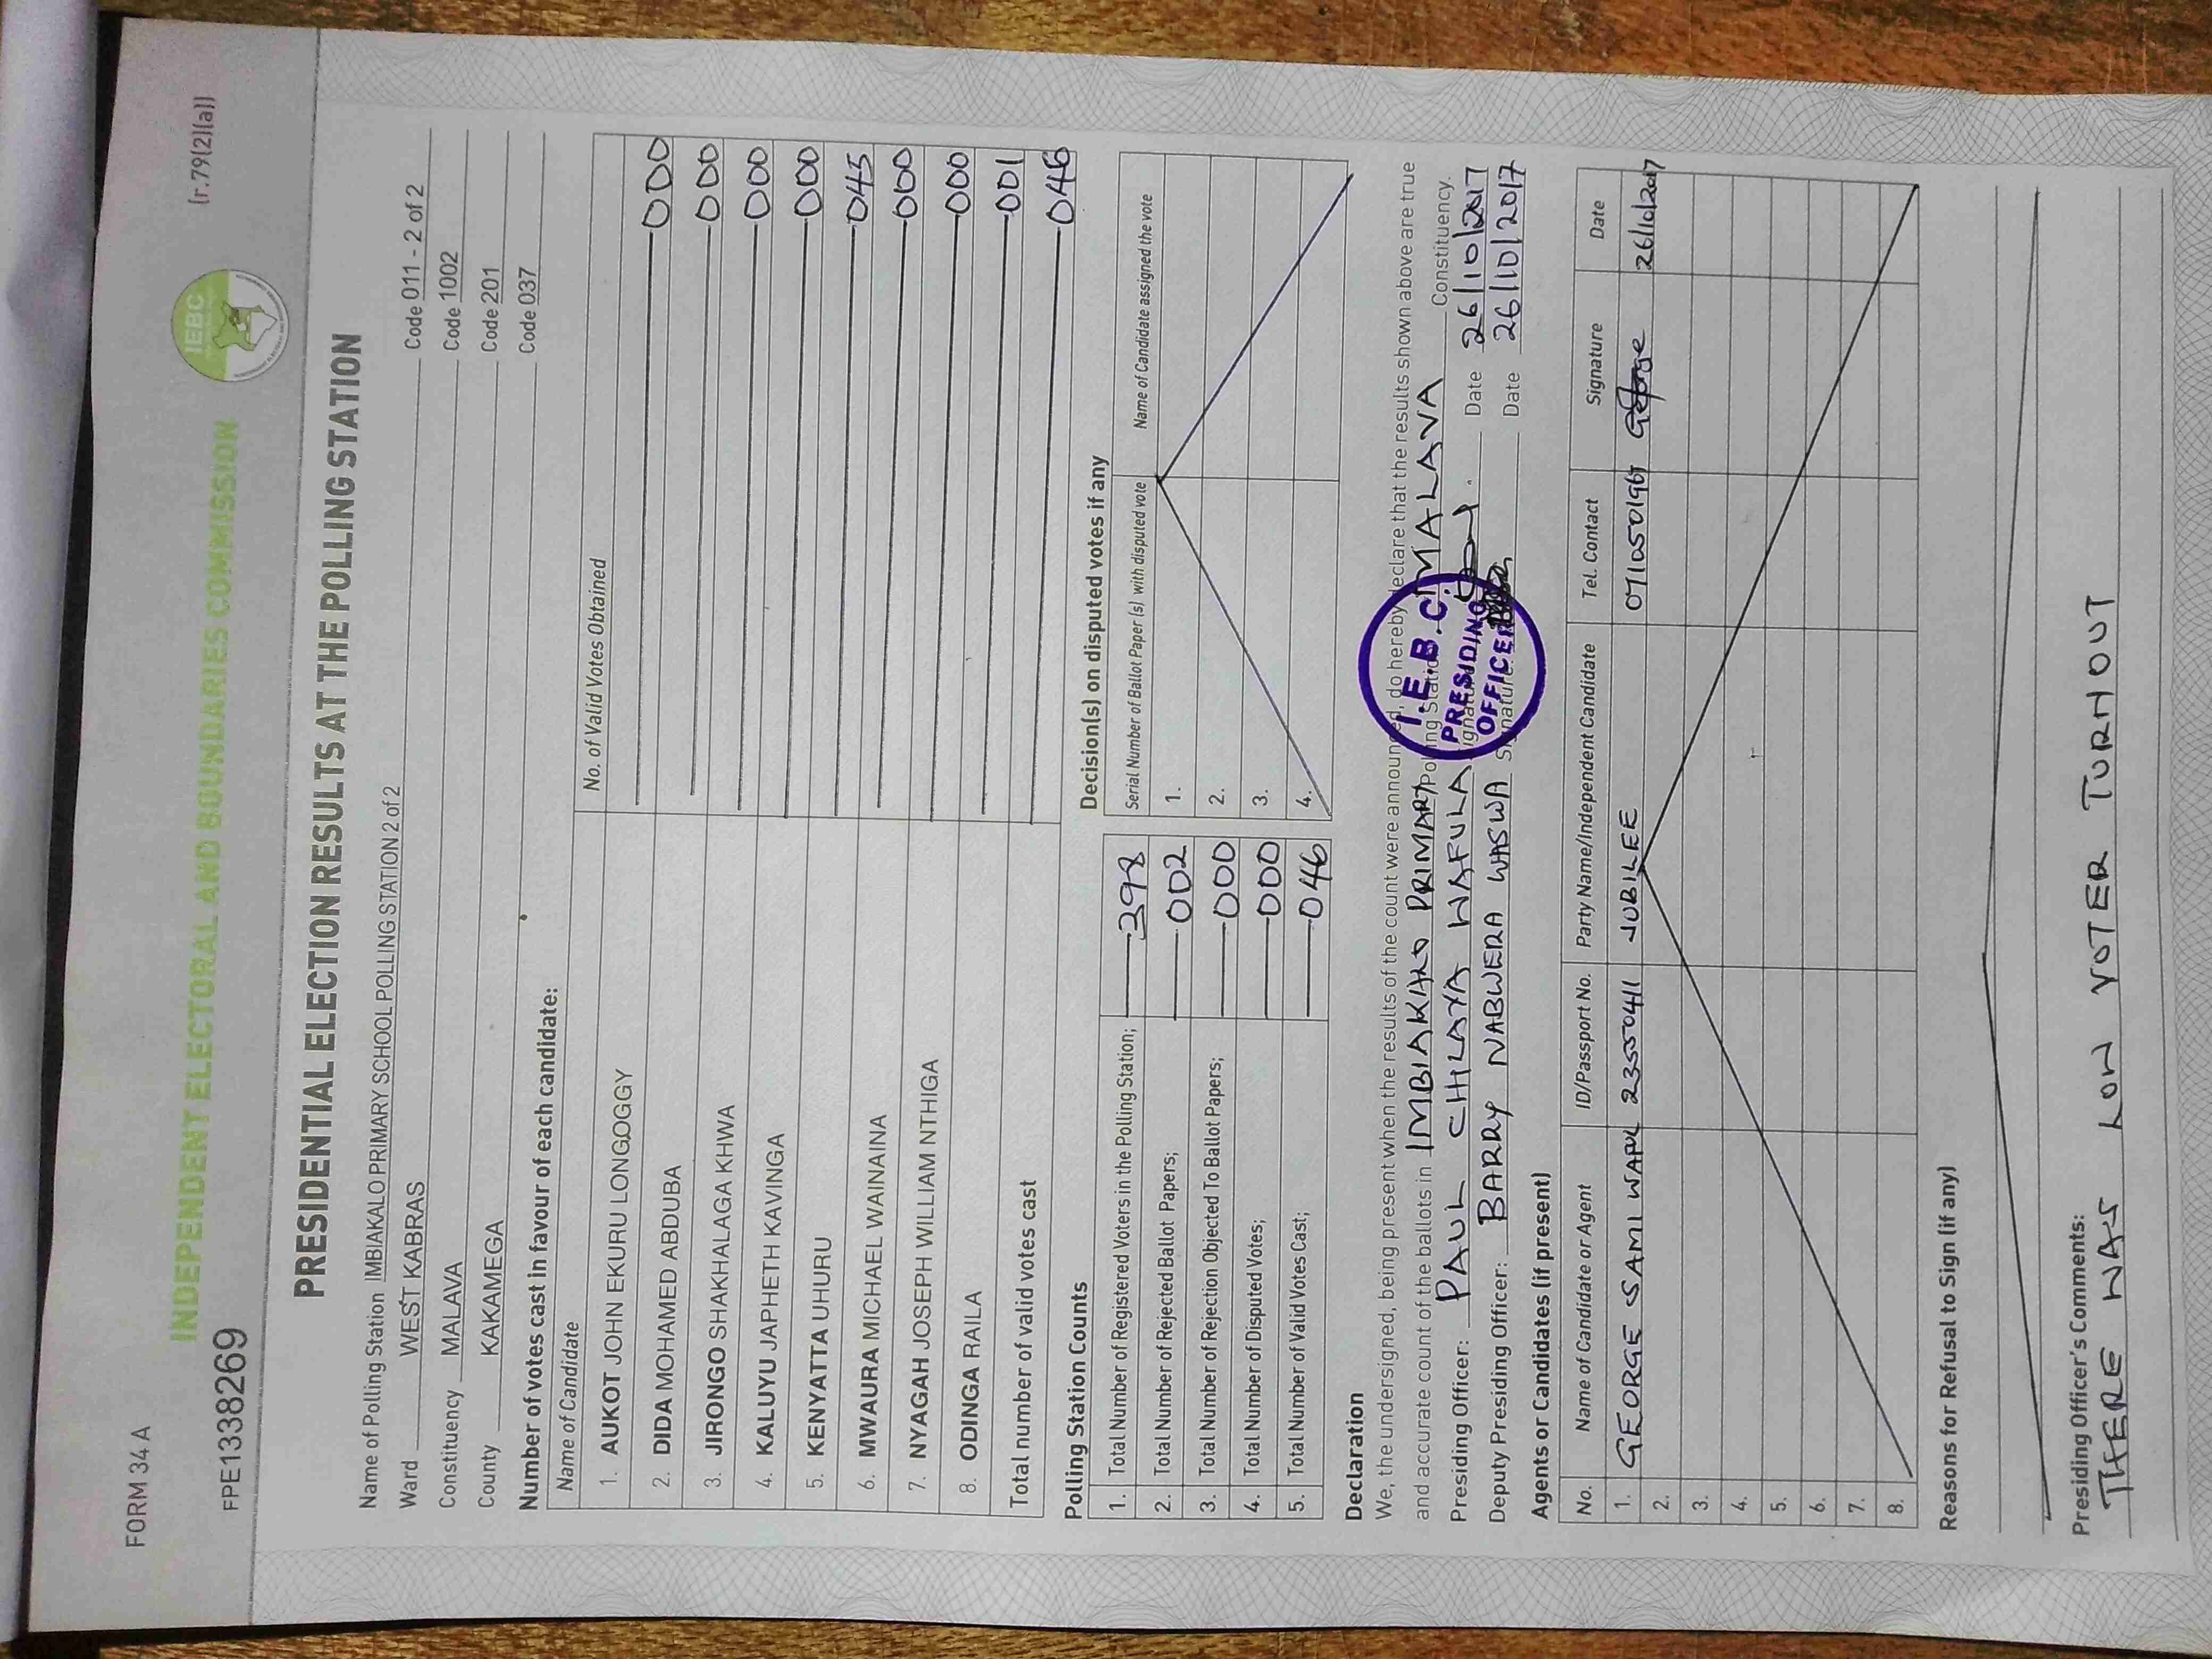 FORM 34 A
(r.79(2)(a))
INDEPENDENT ELECTORAL AND BOUNDARIES COMMISSION
IEBC
FPE1338269
PRESIDENTIAL ELECTION RESULTS AT THE POLLING STATION
Name of Polling Station IMBIAKALO PRIMARY SCHOOL POLLING STATION 2 of 2 Code 011 - 2 of 2
Ward WEST KABRAS Code 1002
Constituency MALAVA Code 201
County KAKAMEGA Code 037
Number of votes cast in favour of each candidate:
Name of Candidate No. of Valid Votes Obtained
1. AUKOT JOHN EKURU LONGOGGY 000
2. DIDA MOHAMED ABDUBA 000
3. JIRONGO SHAKHALAGA KHWA 000
4. KALUYU JAPHETH KAVINGA 000
5. KENYATTA UHURU 045
6. MWAURA MICHAEL WAINAINA 000
7. NYAGAH JOSEPH WILLIAM NTHIGA 000
8. ODINGA RAILA 001
Total number of valid votes cast 046
Polling Station Counts
1. Total Number of Registered Voters in the Polling Station; 398
2. Total Number of Rejected Ballot Papers; 002
3. Total Number of Rejection Objected To Ballot Papers; 000
4. Total Number of Disputed Votes; 000
5. Total Number of Valid Votes Cast; 046
Decision(s) on disputed votes if any
Serial Number of Ballot Paper (s) with disputed vote Name of Candidate assigned the vote
1.
2.
3.
4.
Declaration
We, the undersigned, being present when the results of the count were announced, do hereby declare that the results shown above are true
and accurate count of the ballots in IMBIAKALO PRIMARY Polling Station MALAVA Constituency.
Presiding Officer: PAUL CHILAYA WAFULA Signature Date 26/10/2017
Deputy Presiding Officer: BARRY NABWERA WASWA Signature Date 26/10/2017
I.E.B.C.
PRESIDING
OFFICER
Agents or Candidates (if present)
No. Name of Candidate or Agent ID/Passport No. Party Name/Independent Candidate Tel. Contact Signature Date
1. GEORGE SAMI 23550411 JUBILEE George 26/10/2017
2.
3.
4.
5.
6.
7.
8.
Reasons for Refusal to Sign (if any)
Presiding Officer's Comments:
THERE WAS LOW VOTER TURHOUT